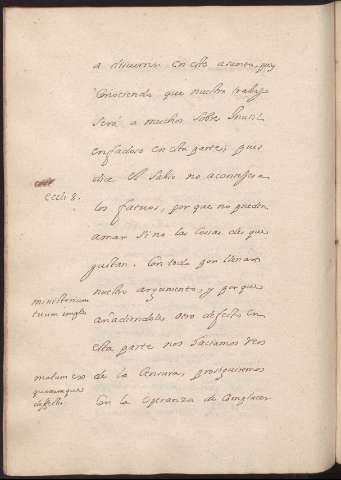 a discurrir en este asunto, pues
Conociendo que nuestro trabajo
será a muchos sobre Inutil
enfadoso en esta parte; pues
dice el Sabio no aconsejes a
eccli 8.
los fatuos, por que no pueden
amar sino las Cosas de que
gustan. Con todo por llenar
ministerium tuum imple
nuestro argumento, y por que
añadiendoles otro defecto en
esta parte nos
de la Censura, proseguiremos
Con la esperanza de Complacer